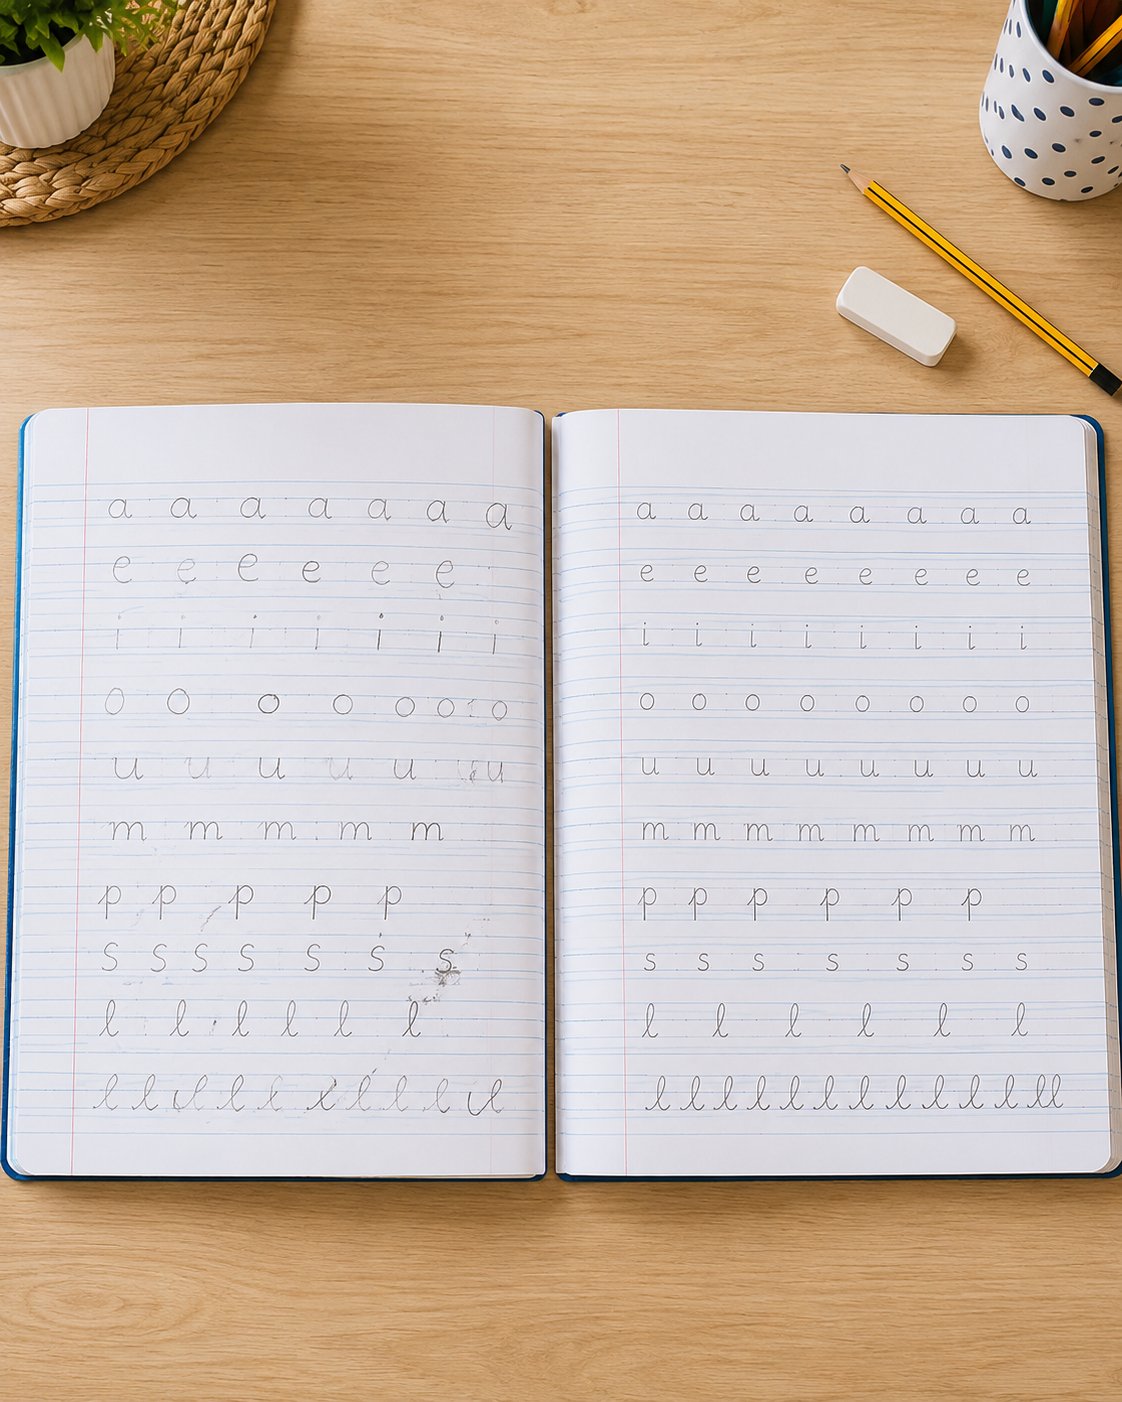 a a a a a a a
e e e e e e
i i i i i i i
o o o o o o o
u u u u u u
m m m m m
p p p p p
s s s s s s s
l l l l l l
l l l l l l l l l
a a a a a a a a
e e e e e e e e
i i i i i i i i
o o o o o o o o
u u u u u u u u
m m m m m m m m
p p p p p p
s s s s s s s
l l l l l l
l l l l l l l l l l l ll